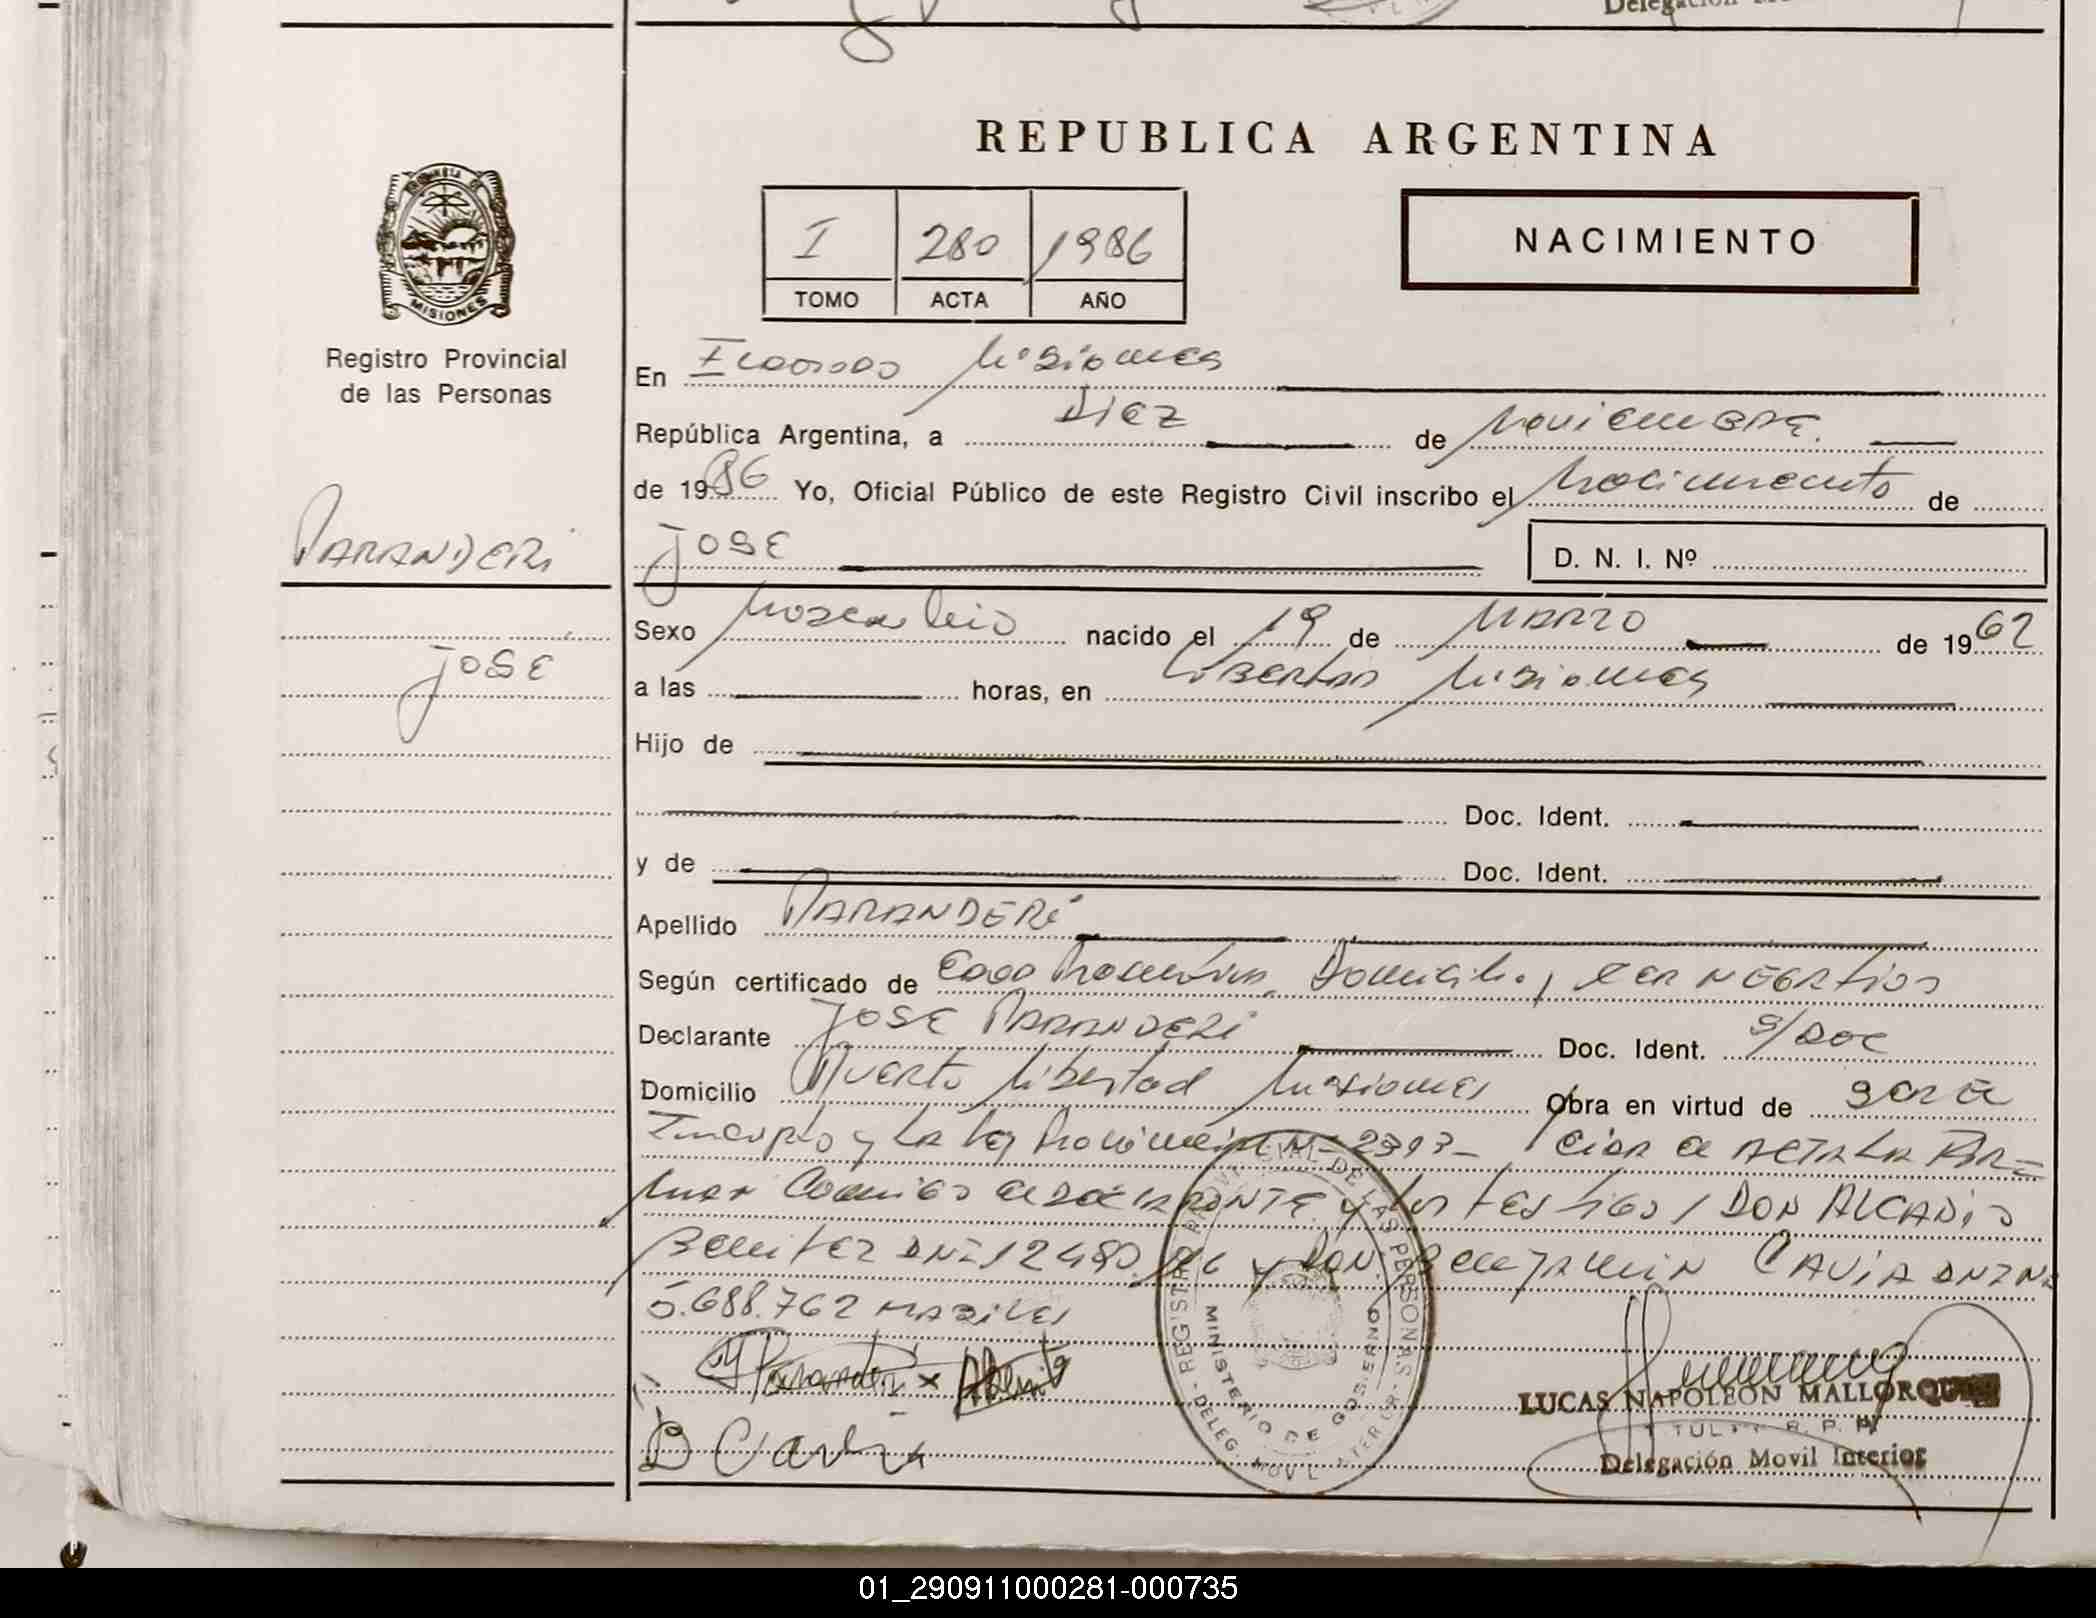 Delegación
REPUBLICA ARGENTINA
I 280 1986
TOMO ACTA AÑO
NACIMIENTO
MISIONES
Registro Provincial
de las Personas
En Misiones
República Argentina, a Diez de Noviembre.
de 1986 Yo, Oficial Público de este Registro Civil inscribo el Nacimiento de
PARANDERi
JOSE
D. N. I. Nº
Sexo Masculino nacido el 19 de MARZO de 1962
JOSE
a las horas, en Libertad Misiones
Hijo de
Doc. Ident.
y de Doc. Ident.
Apellido PARANDERi
Según certificado de Domicilio, NEGATIVO
Declarante JOSE PARANDERi Doc. Ident. S/DOC
Domicilio Puerto Libertad Misiones Obra en virtud de
y La Ley Provincial Nº 2393- ACTA LA FIR=
MAN Conmigo y los testigos, DON
Benitez DNI 12480 y DON BENJAMIN CAVIA DNI Nº
5.688.762
REGISTRO PROVINCIAL DE LAS PERSONAS
MINISTERIO DE GOBIERNO
DELEG. MOVIL INTERIOR
LUCAS NAPOLEON MALLORQUIN
R. P. P.
Delegación Movil Interior
01_290911000281-000735